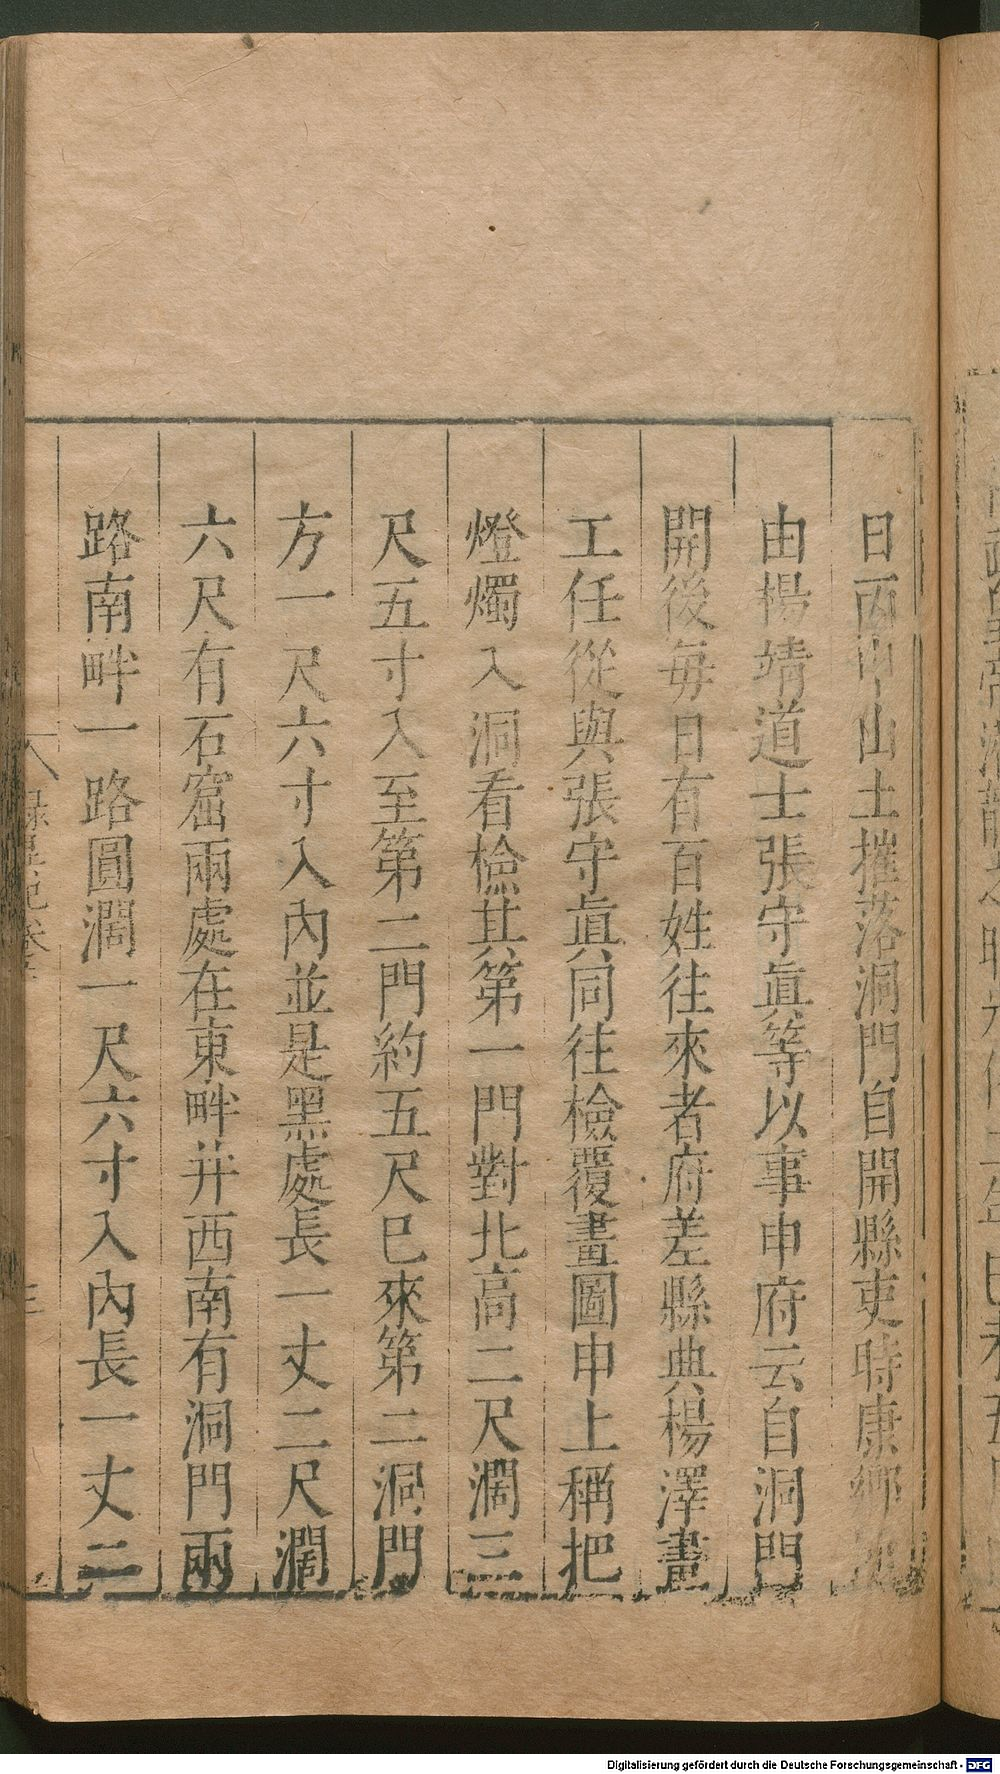 日丙申山土摧落洞門自開縣吏時康鄉
由楊靖道士張守眞等以事申府云自洞門
開後每日有百姓往來者府差縣典楊澤畫
工任從與張守眞同往檢覆畫圖申上稱把
燈燭入洞看檢其第一門對北高二尺濶三
尺五寸入至第二門約五尺巳來第二洞門
方一尺六寸入內並是黑處長一丈二尺濶
六尺有石窟兩處在東畔并西南有洞門兩
路南畔一路圓濶一尺六寸入內長一丈二
錄異記卷
Digitalisierung gefördert durch die Deutsche Forschungsgemeinschaft - DFG